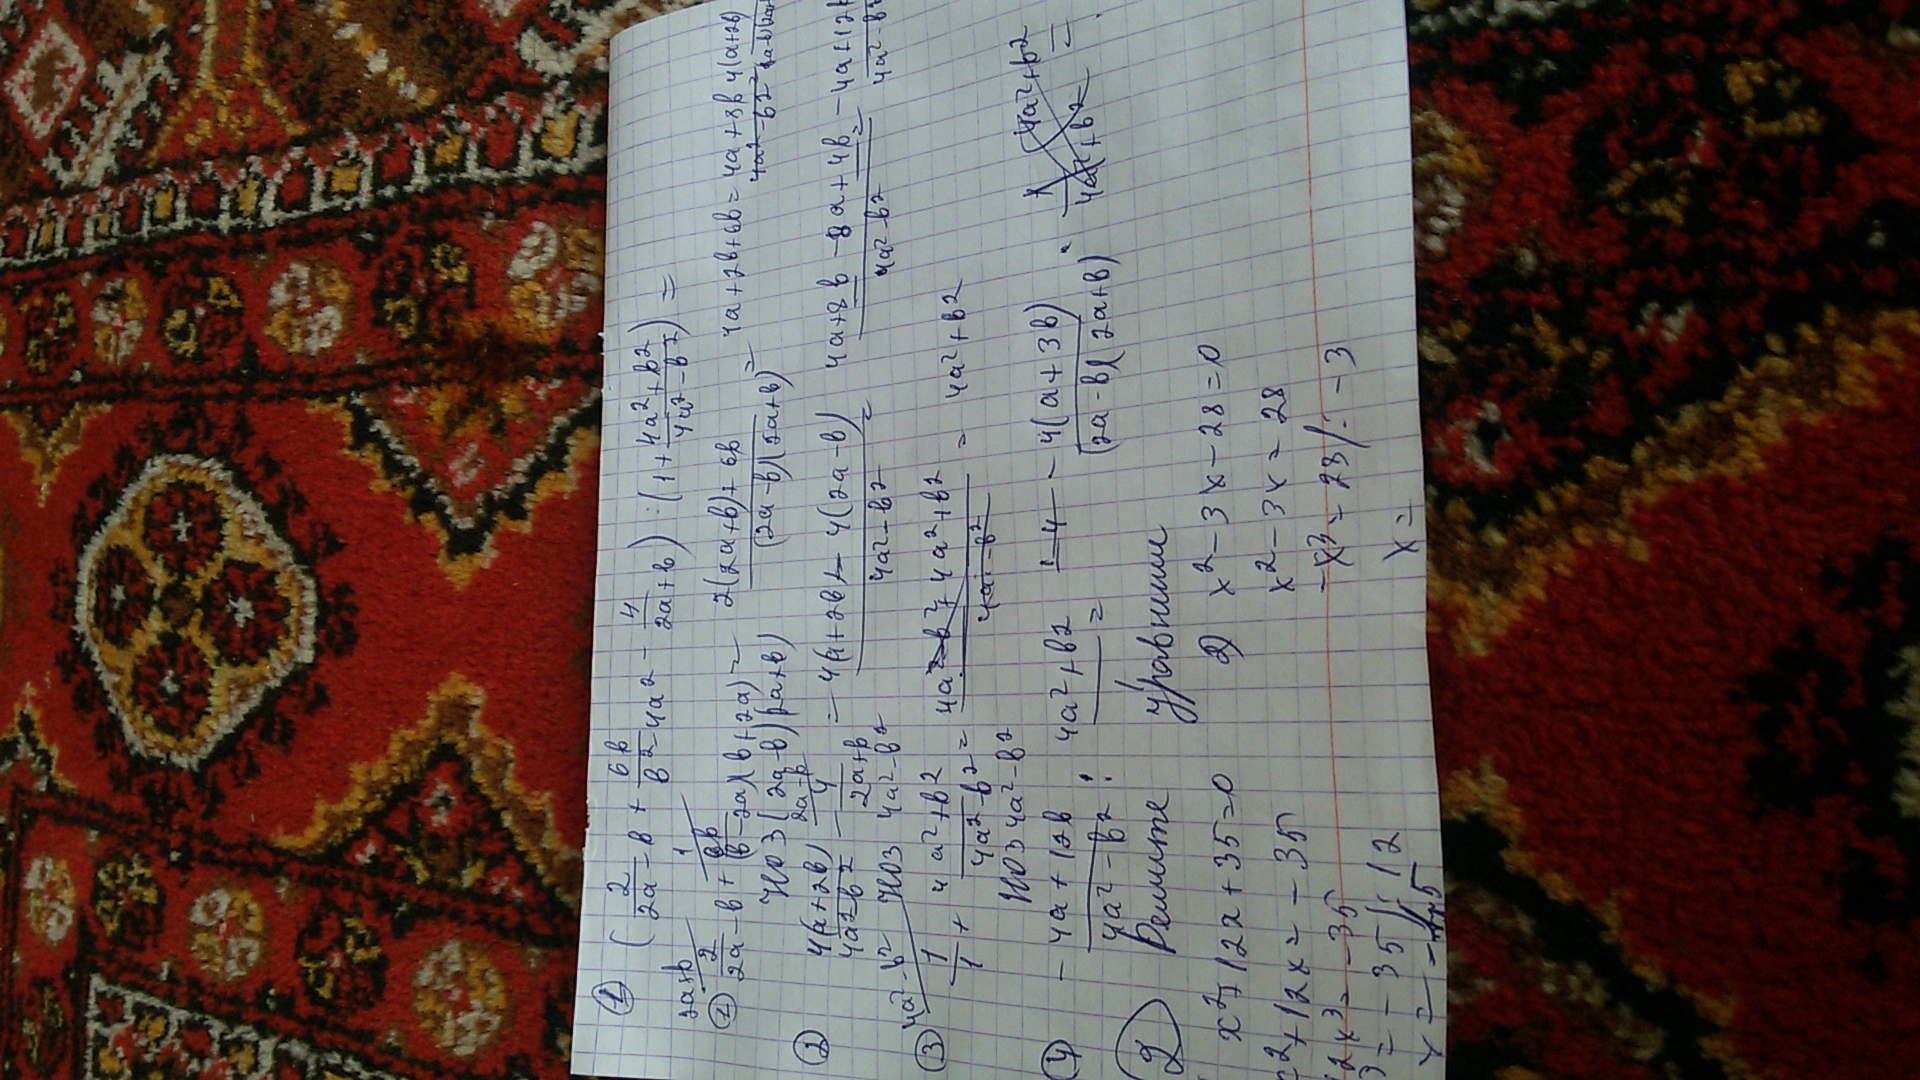 ① (2/2a-b + 6b/b2-4a2 - 4/2a+b) : (1+ 4a2+b2/4a2-b2) =
① 2/2a-b + 6b/(b-2a)(b+2a) = 2(2a+b)+6b/(2a-b)(2a+b) = 4a+2b+6b= 4a+8b/4a2-b2 4(a+2b)
НОЗ (2a-b)(2a+b)
② 4(a+2b)/4a2-b2 - 4/2a+b = 4(a+2b)-4(2a-b)/4a2-b2 = 4a+8b-8a+4b/4a2-b2 = -4a+12b/4a2-b2
НОЗ 4a2-b2
③ 1/1 + 4a2+b2/4a2-b2 = 4a2-b2+4a2+b2/4a2-b2 = 4a2+b2
НОЗ 4a2-b2
④ -4a+12b/4a2-b2 : 4a2+b2 = -4-4(a+3b)/(2a-b)(2a+b) · 1/4a2+b2 4a2+b2 =
② Решите Уравнение
x2+12x+35=0
2) x2-3x-28=0
12x=-35
x2-3x=28
2x3=-35
-x3=28/:-3
3=-35/:12
x=
x=